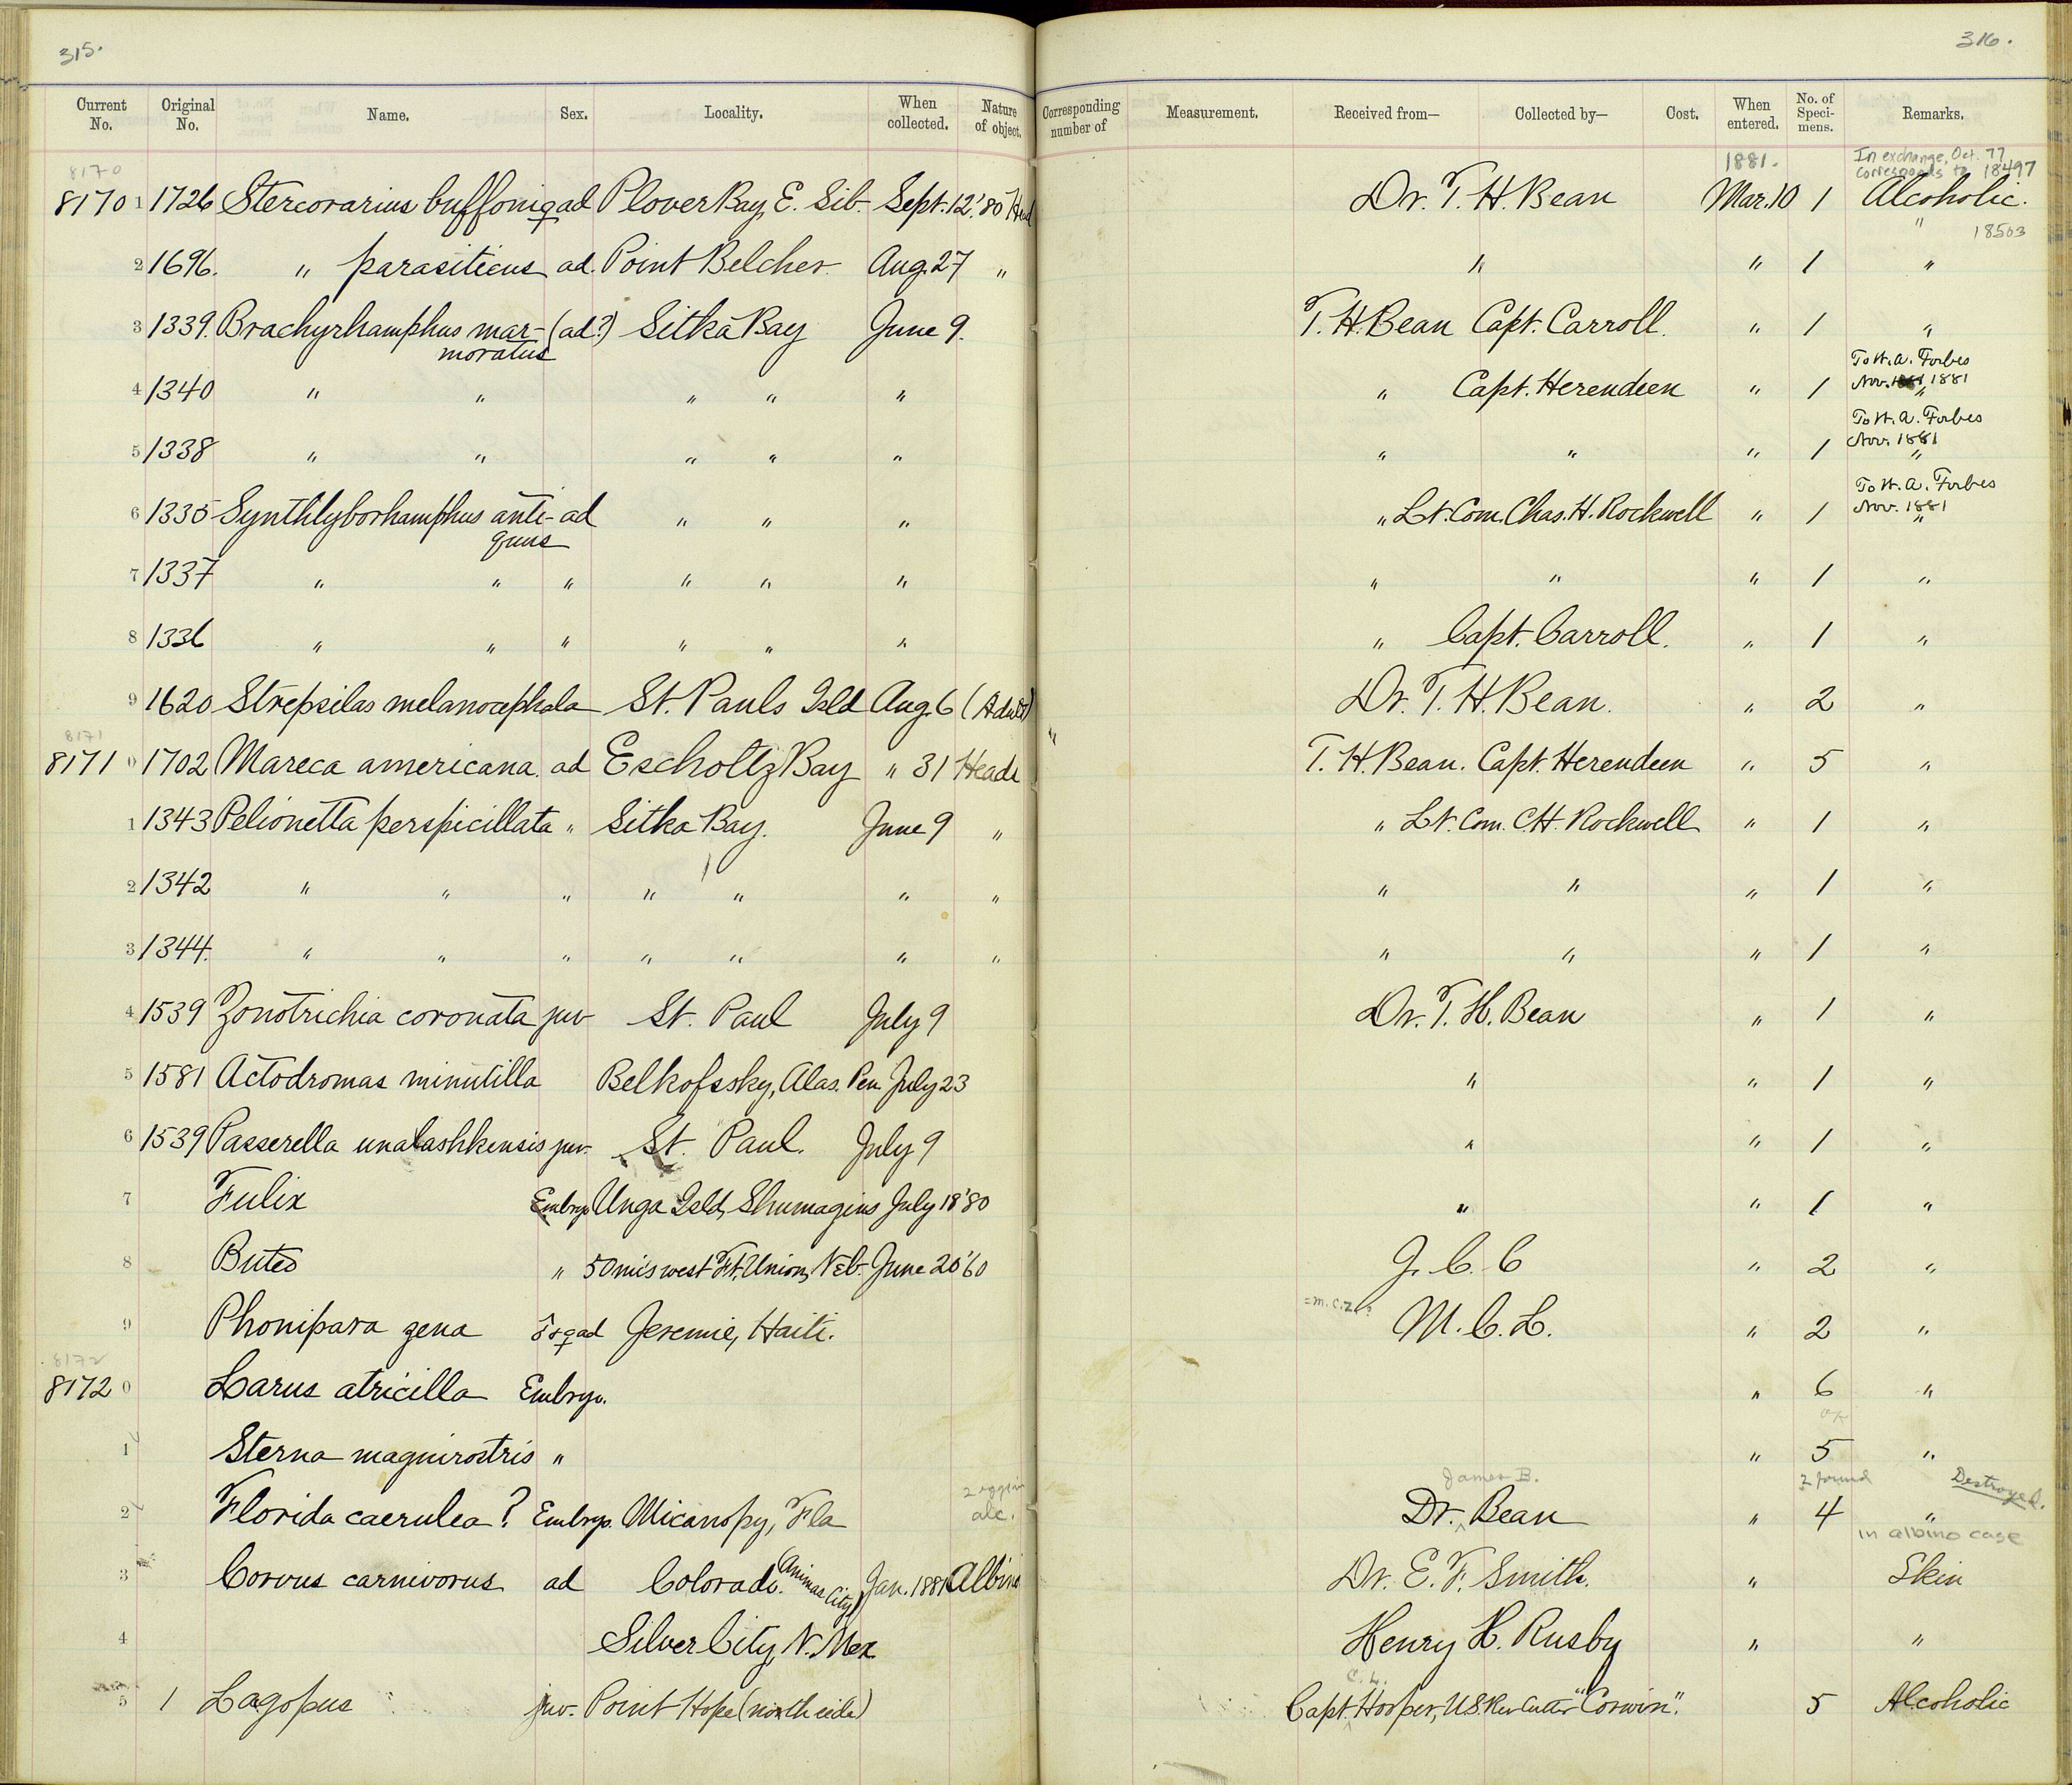 315.
316.
Current No. Original No. Name. Sex. Locality. When collected. Nature of object. Corresponding number of Measurement. Received from— Collected by— Cost. When entered. No. of Speci-mens. Remarks.
8170 1881. In exchange, Oct. 77
Corresponds to 18497
8170 1 1726 Stercorarius buffoni ♀ ad Plover Bay, E. Sib. Sept. 12, '80 Head Dr. T. H. Bean Mar. 10 1 Alcoholic.
" 18503
2 1696. " parasiticus ad. Point Belcher Aug. 27 " " " 1 "
3 1339. Brachyrhamphus mar- (ad?) Sitka Bay June 9. T. H. Bean Capt. Carroll. " 1 "
moratus
To W. A. Forbes
4 1340 " " " " " " Capt. Herendeen " 1 Nov. 1881 "
To W. A. Forbes
5 1338 " " " " " " " " 1 Nov. 1881 "
To W. A. Forbes
6 1335 Synthlyborhamphus anti- ad " " " " Lt. Com. Chas. H. Rockwell " 1 Nov. 1881 "
quus
7 1337 " " " " " " " " " 1 "
8 1336 " " " " " " " Capt. Carroll. " 1 "
9 1620 Strepsilas melanocephala St. Pauls Isld Aug. 6 (Adult) " Dr. T. H. Bean. " 2 "
8171
8171 0 1702 Mareca americana. ad Escholtz Bay " 31 Heads T. H. Bean. Capt. Herendeen " 5 "
1 1343 Pelionetta perspicillata " Sitka Bay. June 9 " " Lt. Com. C.H. Rockwell " 1 "
2 1342 " " " " " " " " " " 1 "
3 1344. " " " " " " " " " " 1 "
4 1539 Zonotrichia coronata juv St. Paul July 9 Dr. T. H. Bean " 1 "
5 1581 Actodromas minutilla Belkofssky, Alas. Pen July 23 " " 1 "
6 1539 Passerella unalashkensis juv. St. Paul. July 9 " " 1 "
7 Fulix Embryo Unga Isld, Shumagins July 18 '80 " " 1 "
8 Buteo " 50 mi's west Ft. Union, Neb. June 20 '60 J. C. C " 2 "
= M.C.Z.?
9 Phonipara zena ♂ & ♀ ad Jeremie, Haiti. M. C. L. " 2 "
8172
8172 0 Larus atricilla Embryo. " 6 "
or
1 Sterna magnirostris " " 5 "
2 eggs in James B. 2 found Destroyed.
2 Florida caerulea? Embryo. Micanopy, Fla alc. Dr. ^ Bean " 4 "
in albino case
3 Corvus carnivorus ad Colorado. (Animas City) Jan. 1881 Albino Dr. E. F. Smith. " Skin
4 Silver City, N. Mex. Henry H. Rusby " "
C. L.
5 1 Lagopus juv. Point Hope (north side) Capt. ^ Hooper, U.S. Rev Cutter "Corwin". 5 Alcoholic